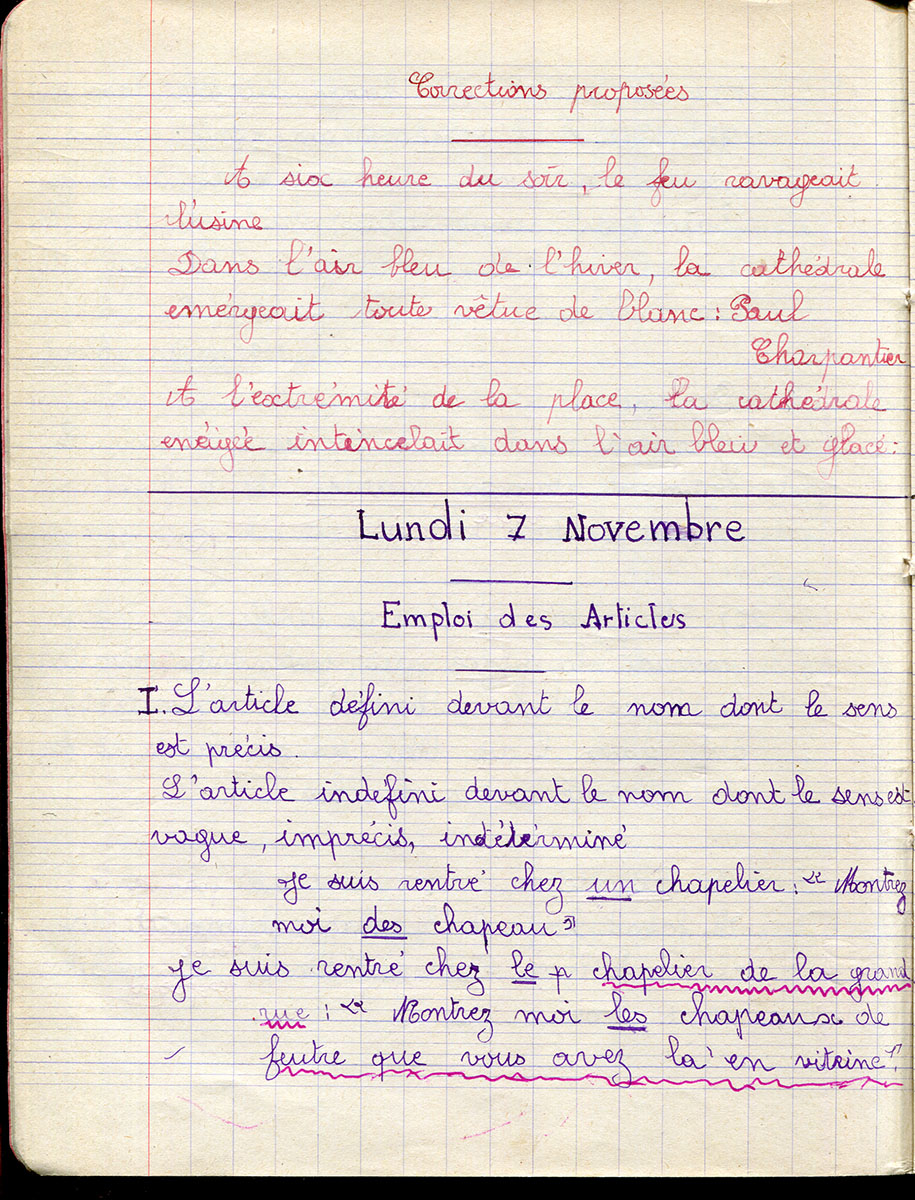 Corrections proposées
A six heure du soir, le feu ravageait
l'usine
Dans l'air bleu de l'hiver, la cathédrale
emérgeait toute vêtue de blanc : Paul
Charpantier
A l'extrémité de la place, la cathédrale
enéigée intencelait dans l'air bleu et glacé.
Lundi 7 Novembre
Emploi des Articles
I. L'article défini devant le nom dont le sens
est précis.
L'article indéfini devant le nom dont le sens est
vague, imprécis, indétérminé
Je suis rentré chez un chapelier : « Montrez
moi des chapeau »
Je suis rentré chez le p chapelier de la grand
rue : « Montrez moi les chapeaux de
feutre que vous avez là en vitrine »